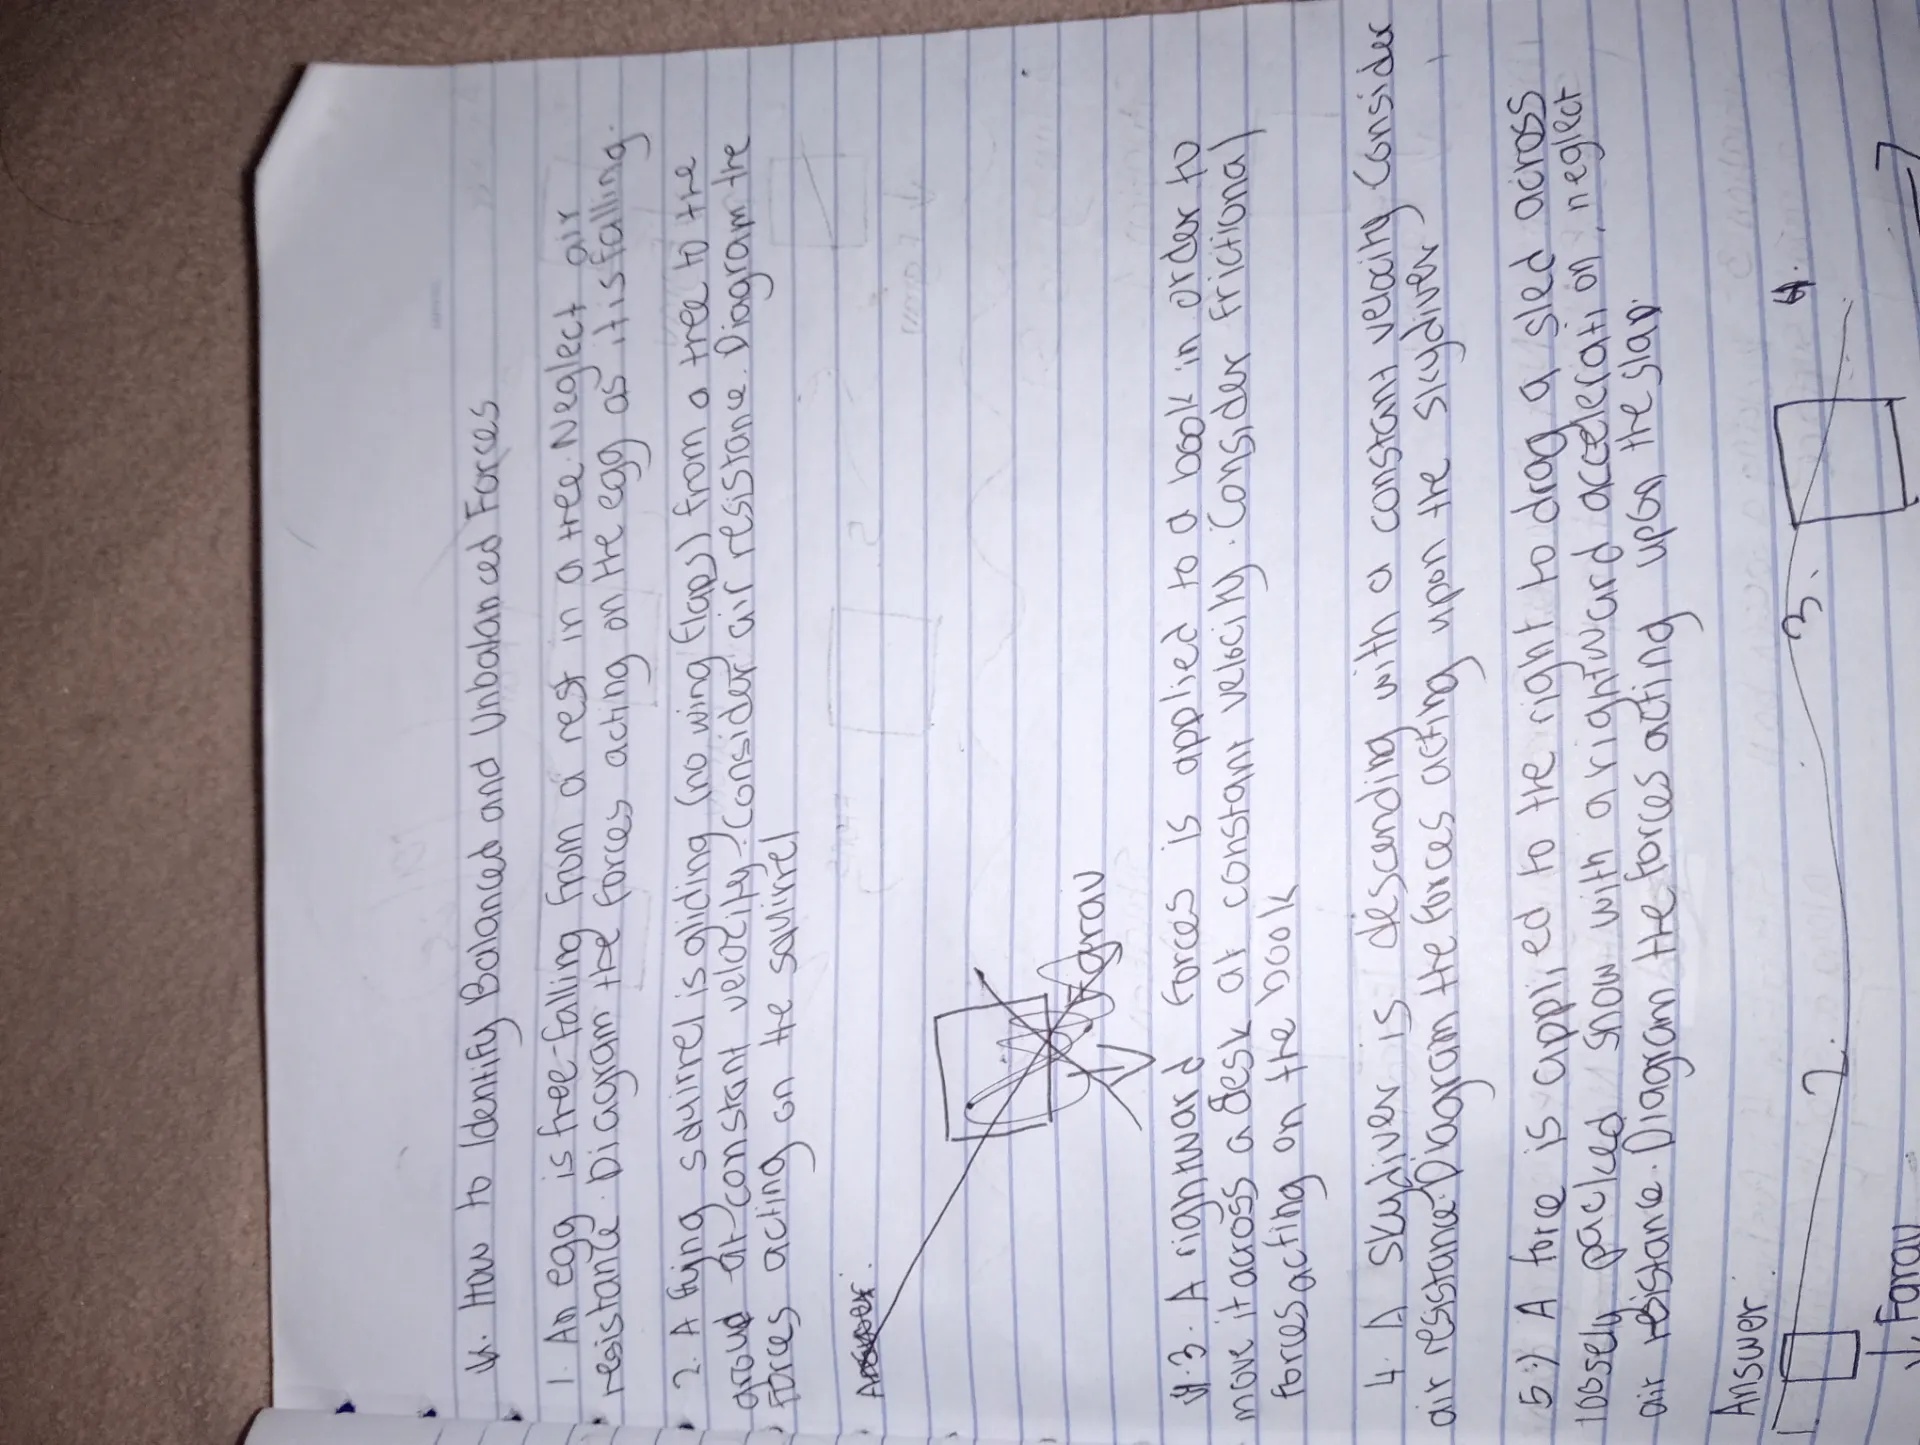 4. How to Identify Balanced and Unbalanced Forces
1. An egg is free-falling from a rest in a tree. Neglect air
resistance. Diagram the forces acting on the egg as it is falling.
2. A flying squirrel is gliding (no wing flaps) from a tree to the
ground at constant velocity. Consider air resistance. Diagram the
forces acting on the squirrel
Answer.
Fgrav
3. A rightward forces is applied to a book in order to
move it across a desk at constant velocity. Consider frictional
forces acting on the book
4. A skydiver is descending with a constant velocity Consider
air resistance. Diagram the forces acting upon the skydiver
5.) A force is applied to the right to drag a sled across
loosely packed snow with a rightward acceleration, neglect
air resistance. Diagram the forces acting upon the slap.
Answer
1. 2. 3. 4.
Fgrav